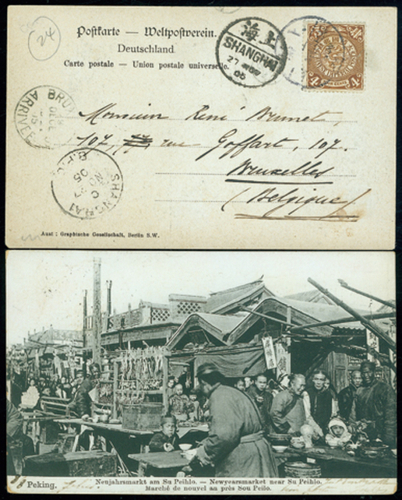 24
Postkarte — Weltpostverein.
Deutschland
Carte postale — Union postale universelle
上海
SHANGHAI
27 NOV
05
4c
BRU
ARRIVEE
Monsieur René Brunet
107, rue Goffart, 107.
Bruxelles
(Belgique)
SHANGHAI
B.P.O.
C
NO 27
05
Aust : Graphische Gesellschaft, Berlin S.W.
Neujahrsmarkt am Su Peihlo. — Newyearsmarket near Su Peihlo.
Peking. Marché de nouvel an près Sou Peilo.